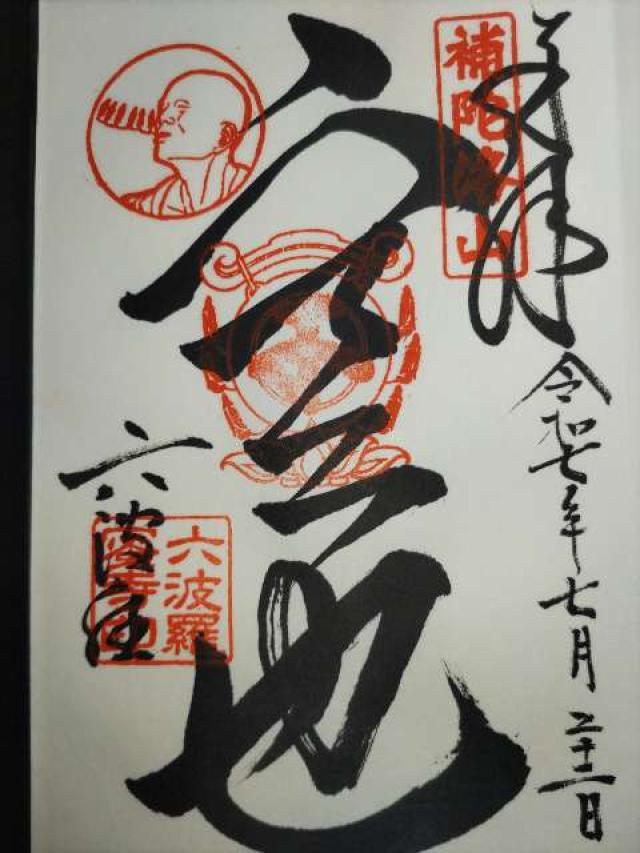 奉拝
補陀洛山
令和七年七月二十二日
空也
六波
六波羅
蜜寺印